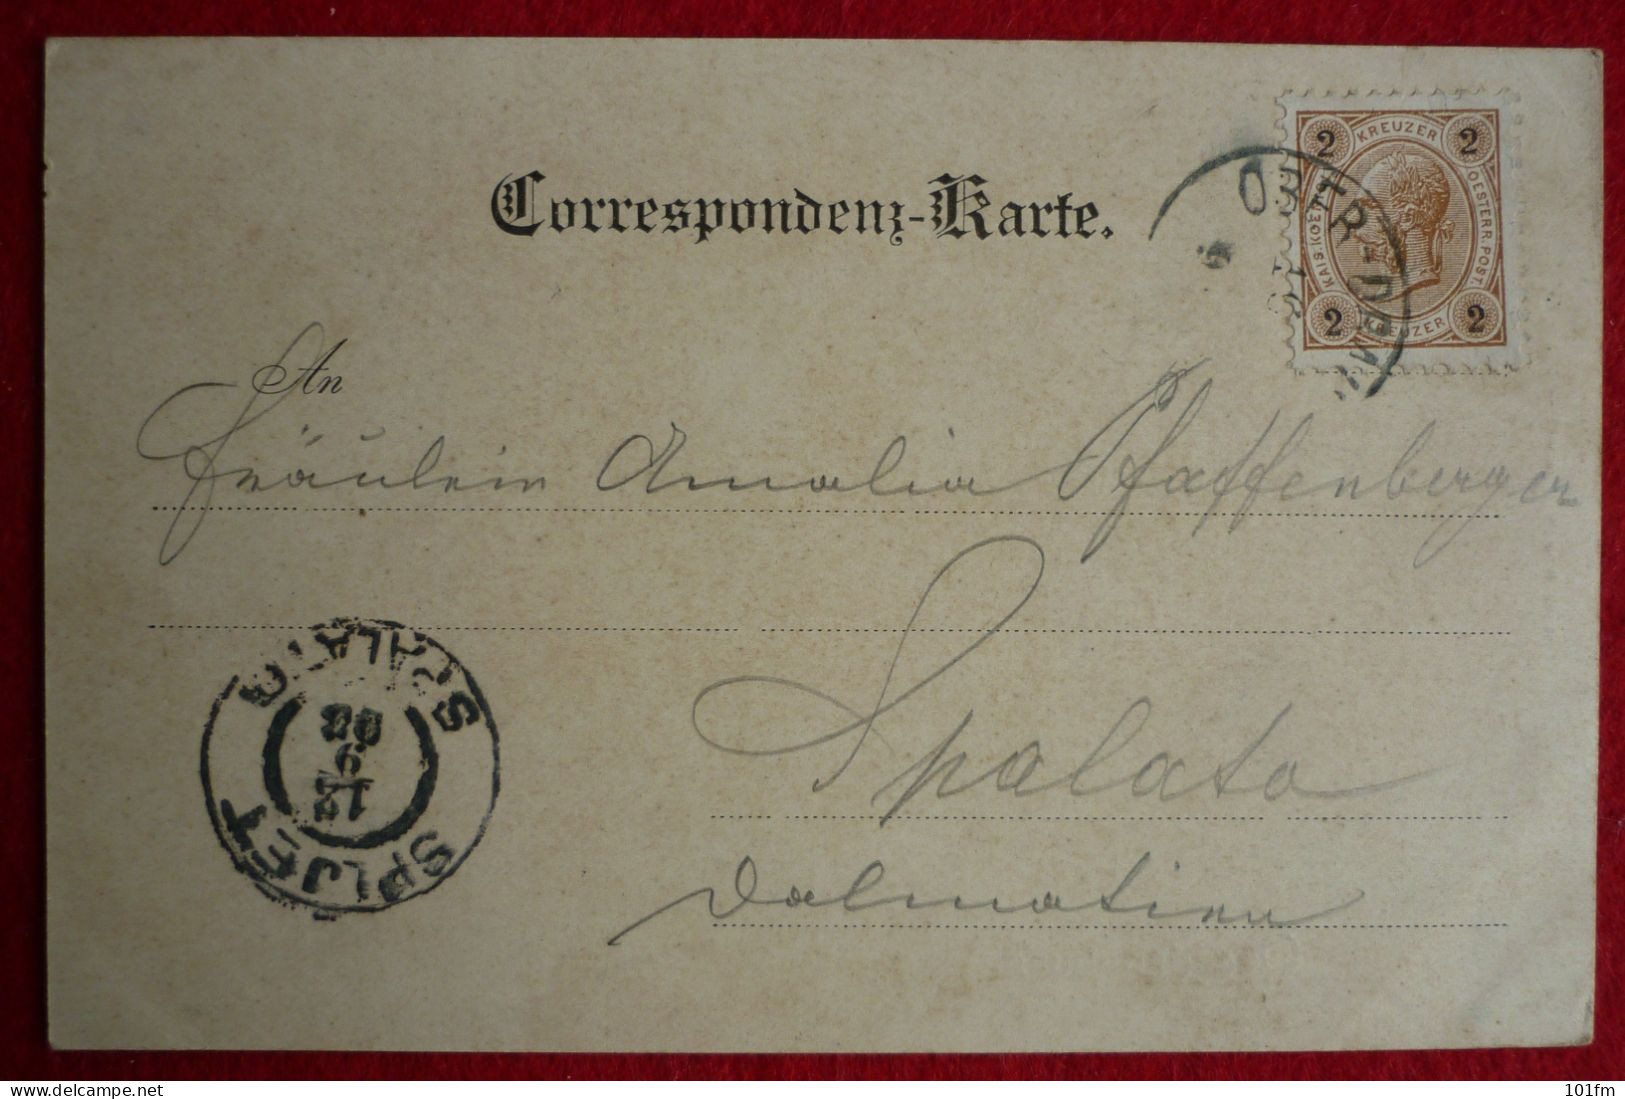 Correspondenz-Karte.
2 KREUZER 2
KAIS. KOEN
OESTERR. POST.
2 KREUZER 2
ORTR-UDM
An
Fräulein Amalia Pfaffenberger
Spalato
Dalmatien
SPALATO
12
9
98
SPLJET
101fm